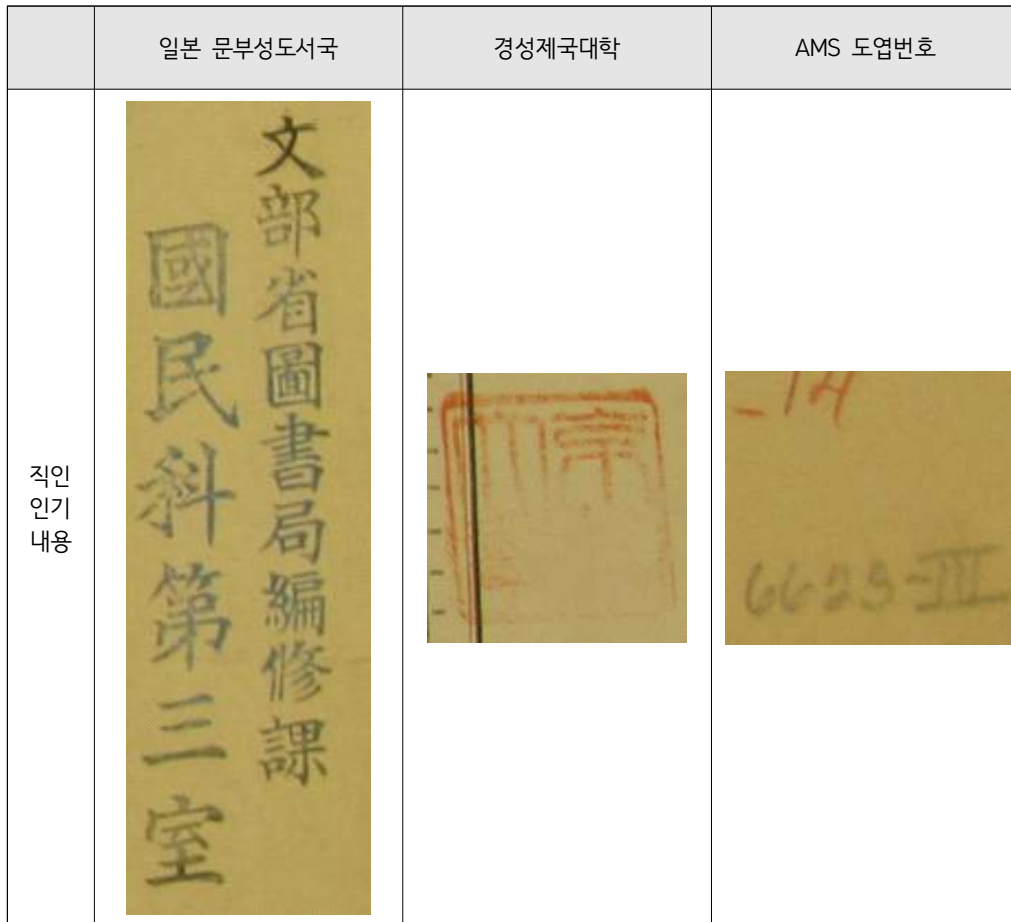 일본 문부성도서국
경성제국대학
AMS 도엽번호
직인
인기
내용
文部省圖書局編修課
國民科第三室
京
-14
6623-III